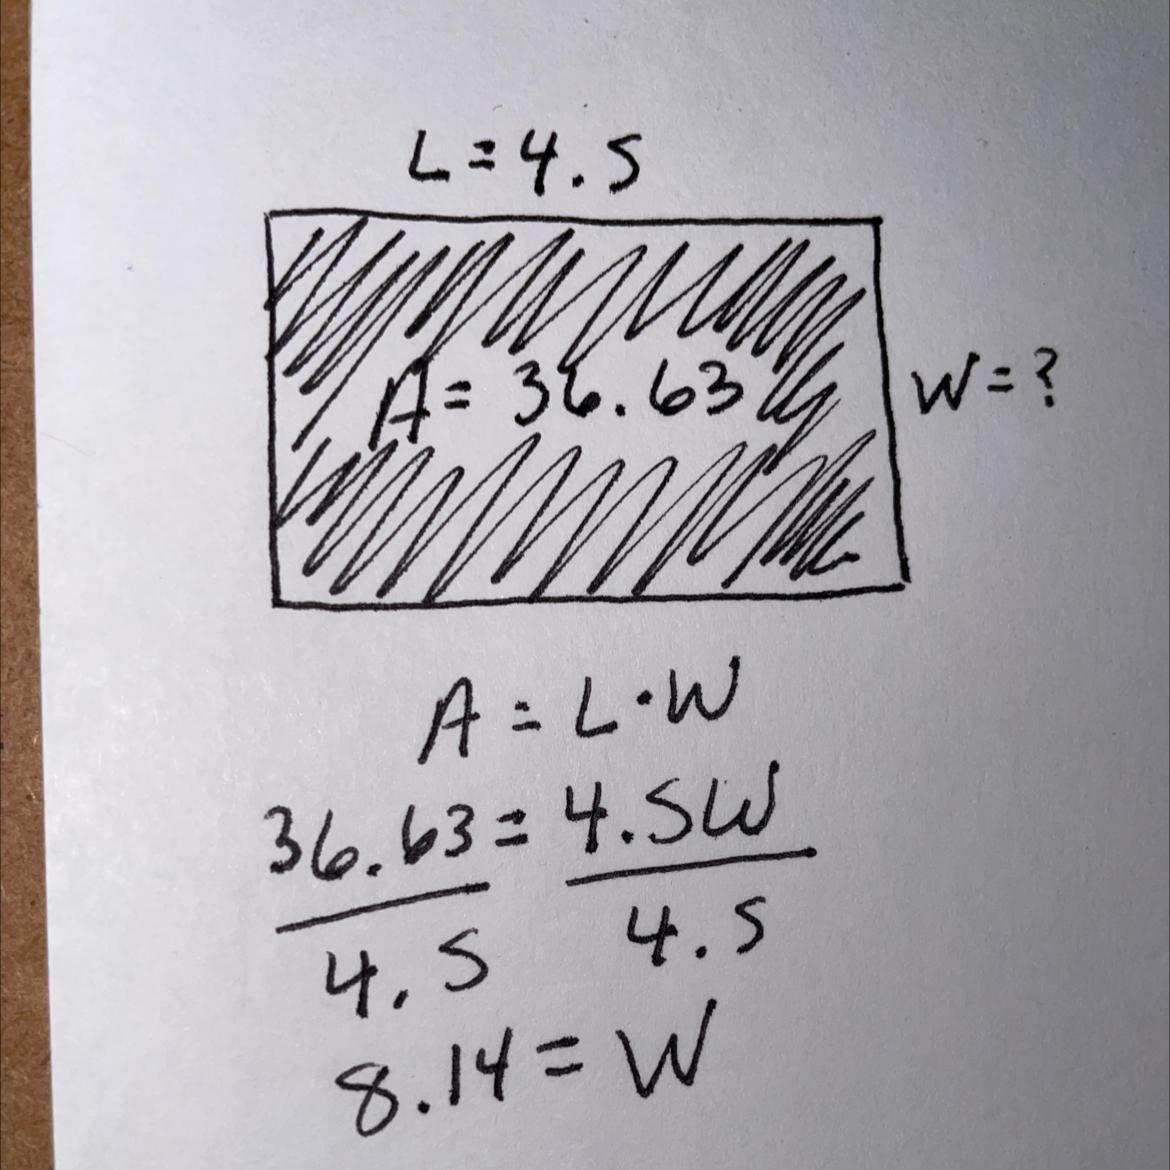 L = 4.5
A = 36.63
W = ?
A = L · W
36.63 = 4.5W
4.5 4.5
8.14 = W